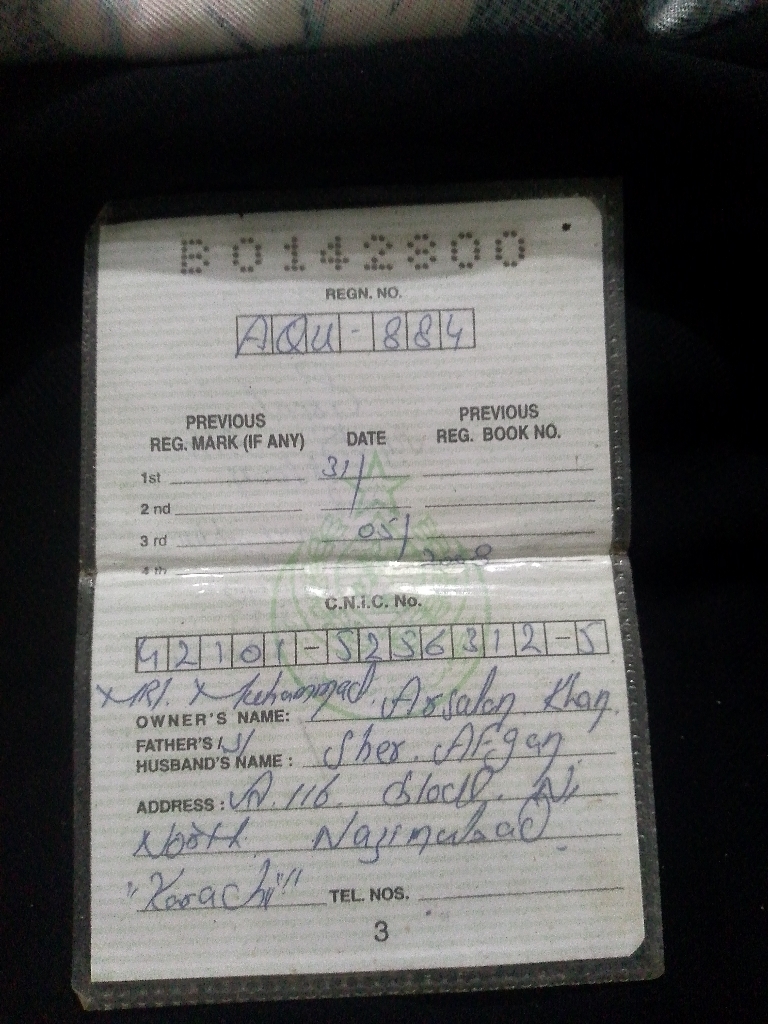 B0142800
REGN. NO.
AQU-884
PREVIOUS REG. MARK (IF ANY) DATE PREVIOUS REG. BOOK NO.
1st 31/
2 nd
3 rd 05/
4 th 2008
C.N.I.C. No.
42101-5256312-5
OWNER'S NAME: Muhammad Arsalan Khan
FATHER'S/
HUSBAND'S NAME: Sher Afgan
ADDRESS: A. 116 Block N
North Nazimabad
"Karachi" TEL. NOS.
3